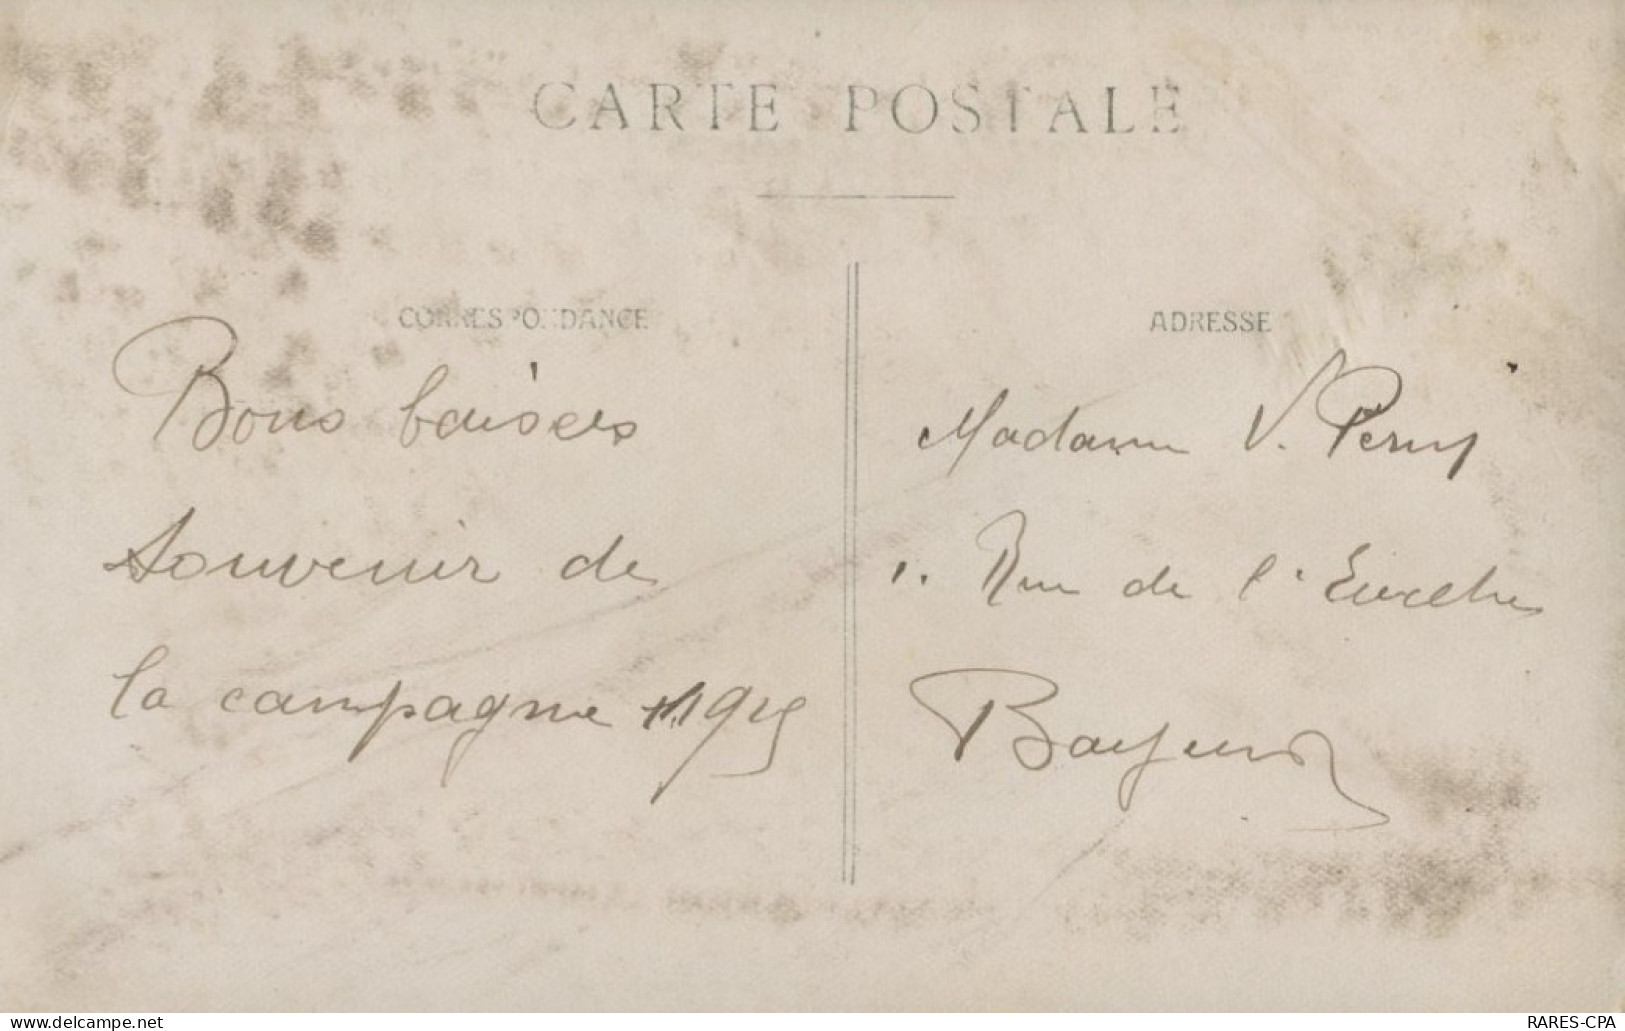 CARTE POSTALE
CORRESPONDANCE
Bons baisers
Souvenir de
la campagne 1915
ADRESSE
Madame V.
1. Rue de l'
Bayeux
delcampe.net
RARES-CPA